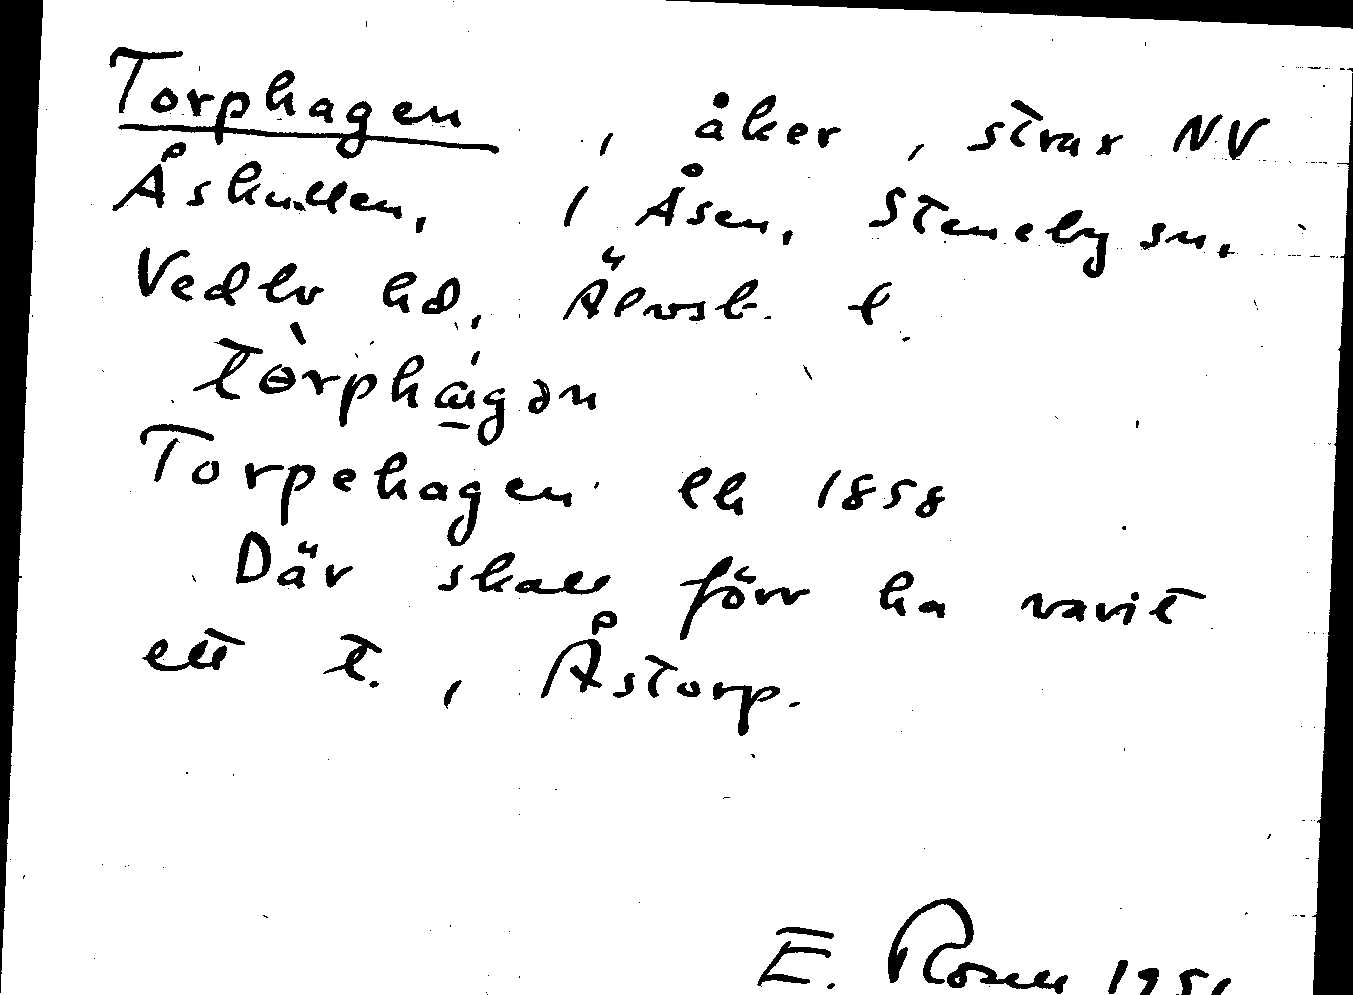 Torphagen, åker, strax NV
Åskullen, 1 Åsen, Steneby sn,
Vedbo hd, Älvsb. l
tɵ̀rphá̱gən
Torpehagen lh 1858
Där skall förr ha varit
ett t., Åstorp.
E. Rosén